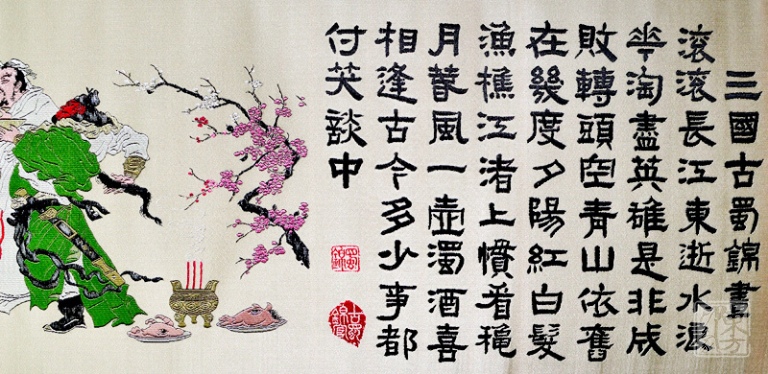 三國古蜀錦畫
滾滾長江東逝水浪
花淘盡英雄是非成
敗轉頭空青山依舊
在幾度夕陽紅白髮
漁樵江渚上慣看穐
月春風一壺濁酒喜
相逢古今多少事都
付笑談中
古蜀錦官